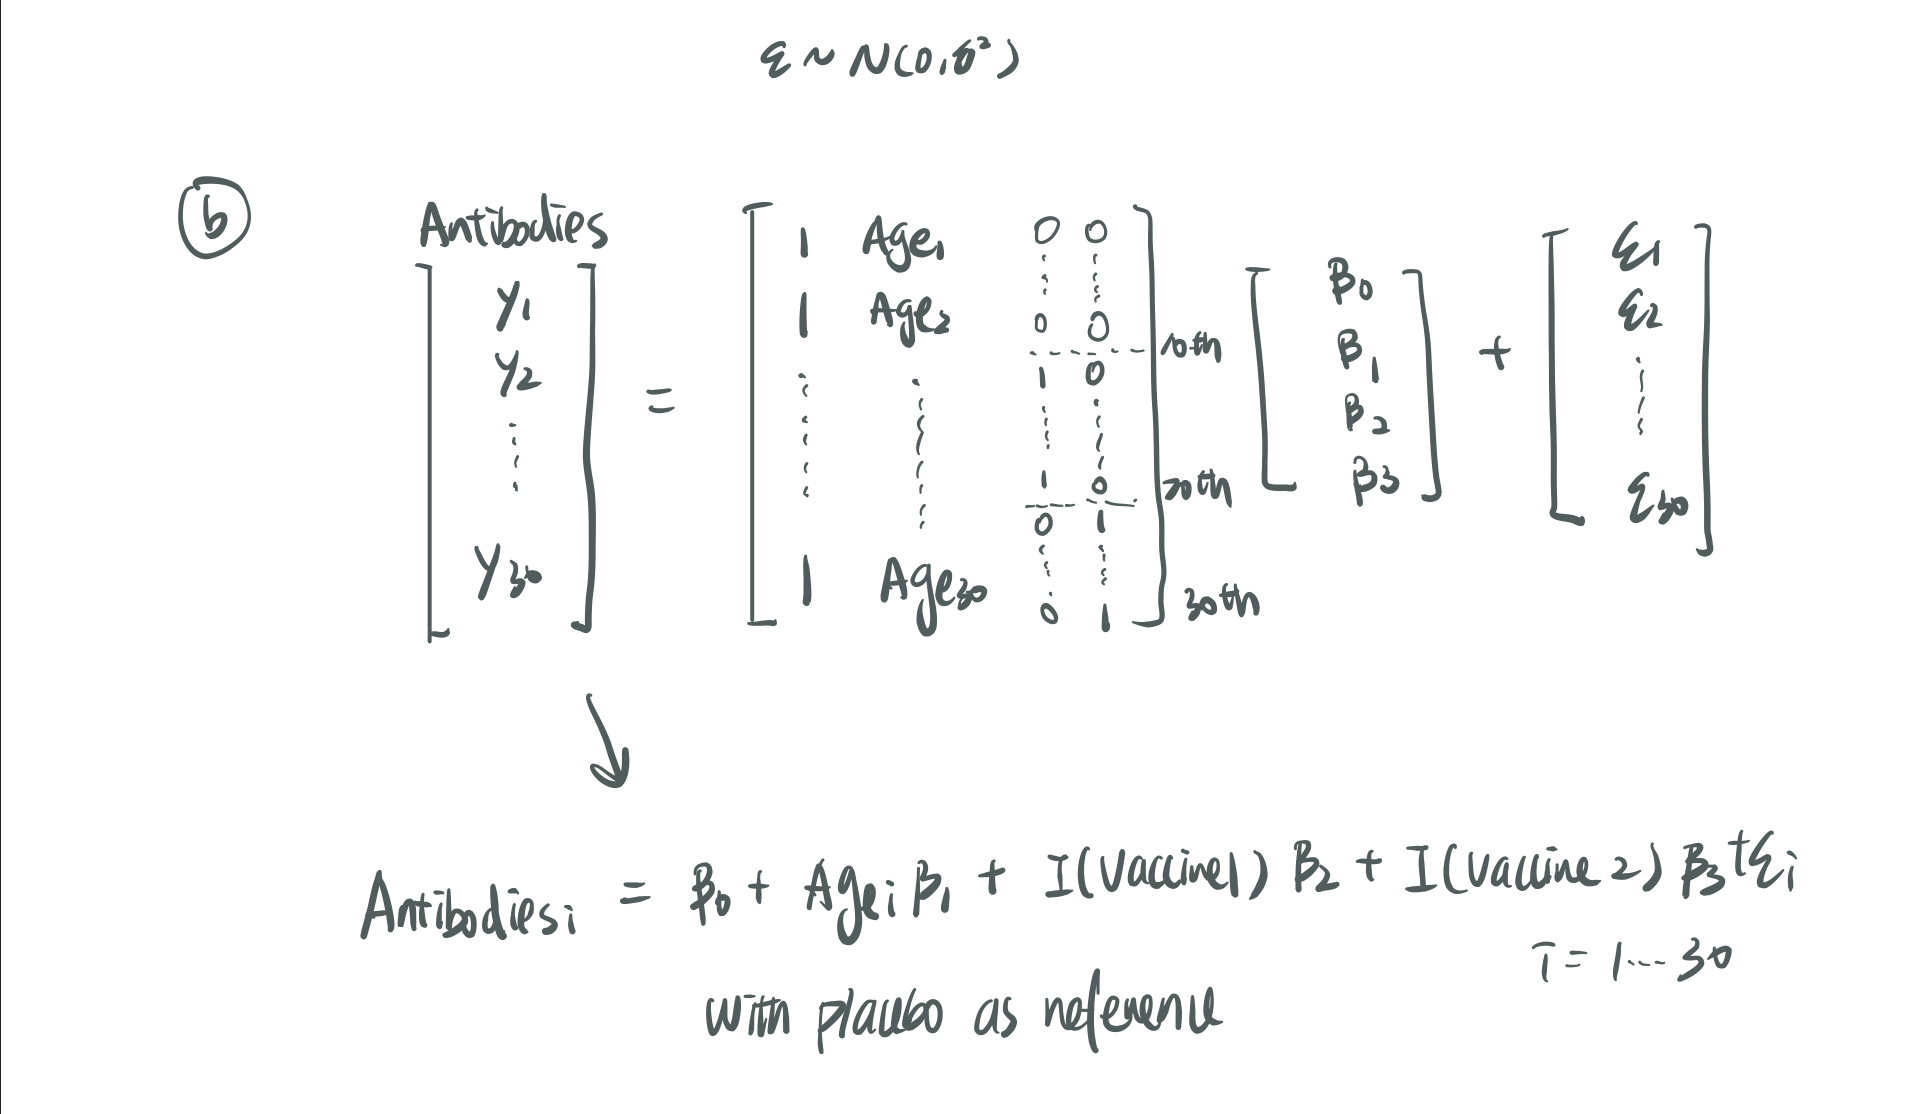 ε ~ N(0,σ²)
b
Antibodies
[ y1 y2 ⋮ y30 ] = [ 1 Age1 0 0
⋮ ⋮
1 Age2 0 0
10th
⋮ ⋮ 1 0
⋮ ⋮
1 0
20th
0 1
⋮ ⋮
1 Age30 0 1 ]
30th
[ β0 β1 β2 β3 ] + [ ε1 ε2 ⋮ ε30 ]
↓
Antibodiesi = β0 + Agei β1 + I(Vaccine1) β2 + I(Vaccine 2) β3 + εi
i = 1 ... 30
with placebo as reference